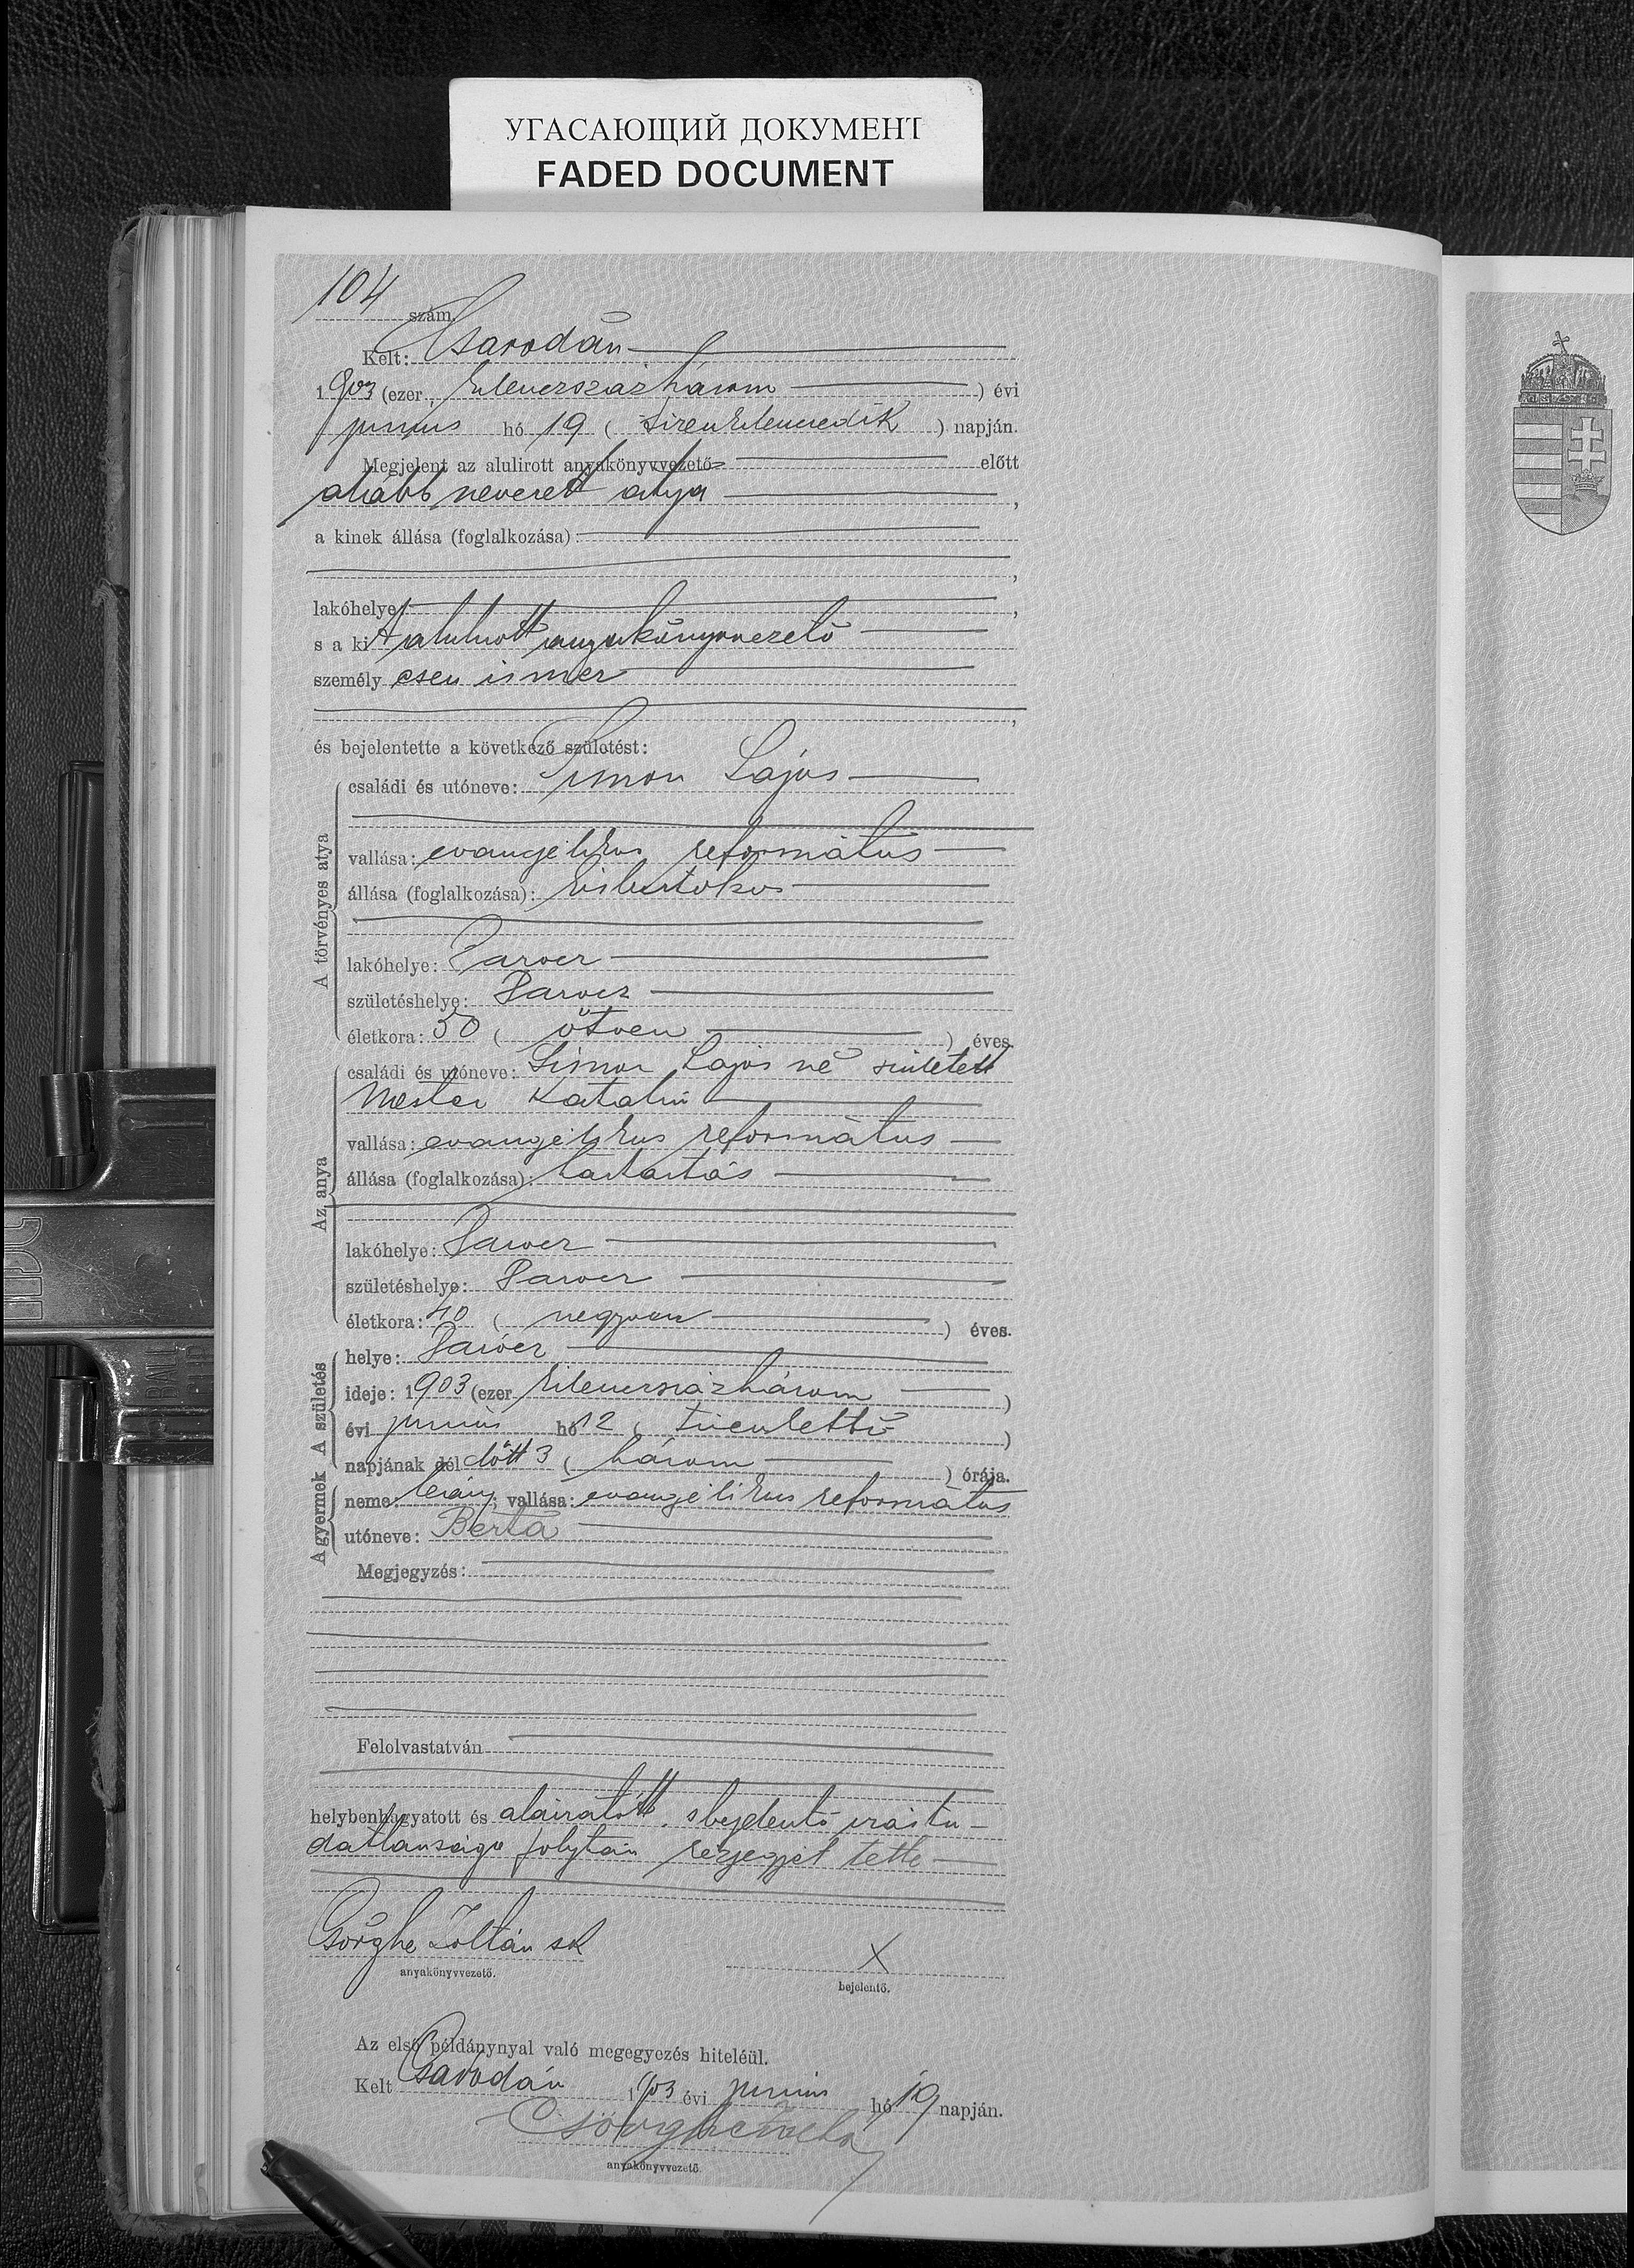 УГАСАЮЩИЙ ДОКУМЕНТ
FADED DOCUMENT
104 szám.
Kelt: Csarodán
1903 (ezer kilencszázhárom ) évi
junius hó 19 ( tizenkilencedik ) napján.
Megjelent az alulirott anyakönyvvezető előtt
alább nevezett atya ,
a kinek állása (foglalkozása):
,
lakóhelye ,
s a kit alulirott anyakönyvvezető
személyesen ismer
,
és bejelentette a következő születést:
A törvényes atya
családi és utóneve: Simon Lajos
vallása: evangélikus református
állása (foglalkozása): kisbirtokos
lakóhelye:
születéshelye:
életkora: 50 ( ötven ) éves.
Az anya
családi és utóneve: Simon Lajos né született
Mester Katalin
vallása: evangélikus református
állása (foglalkozása): háztartás
lakóhelye:
születéshelye:
életkora: 40 ( negyven ) éves.
A születés
helye:
ideje: 1903 (ezer kilencszázhárom )
évi junius hó 12 ( tizenkettő )
napjának délelőtt 3 ( három ) órája.
A gyermek
neme: leány; vallása: evangélikus református
utóneve: Berta
Megjegyzés:
Felolvastatván
helybenhagyatott és aláiratott, s bejelentő irástu-
datlansága folytán kézjegyét tette
Csörghe Zoltán sk X
anyakönyvvezető. bejelentő.
Az első példánynyal való megegyezés hiteléül.
Kelt Csarodán 1903 évi junius hó 19 napján.
Csörghe Zoltán
anyakönyvvezető.